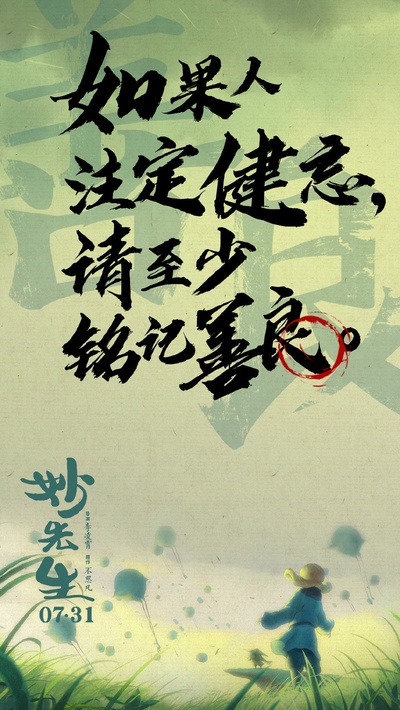 善良
如果人
注定健忘，
请至少
铭记善良。
妙先生
导演 李凌霄 监制 不思凡
07·31